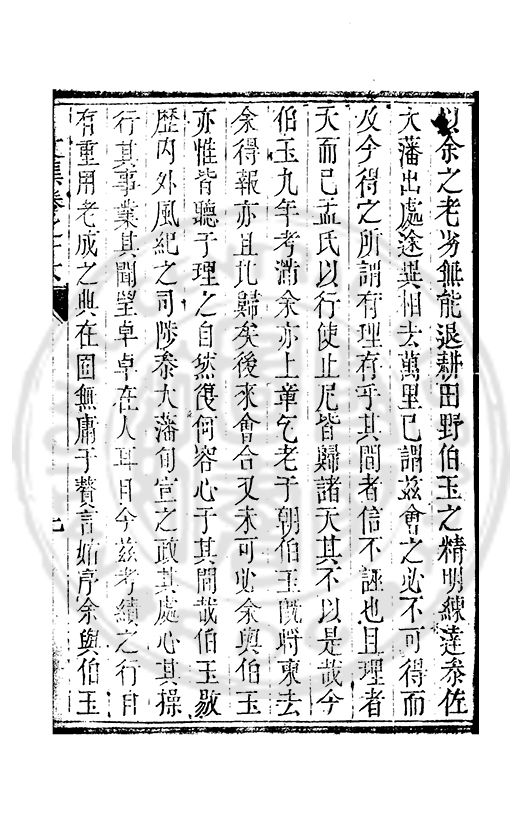 以余之老劣無能退耕田野伯玉之精明練達叅佐
大藩出處途異相去萬里已謂兹會之必不可得而
及今得之所謂有理有乎其間者信不誣也且理者
天而已孟氏以行使止尼皆歸諸天其不以是哉今
伯玉九年考滿余亦上章乞老于朝伯玉旣將東去
余得報亦且北歸矣後來會合又未可必余與伯玉
亦惟皆聽于理之自然復何容心于其間哉伯玉敭
歷内外風紀之司陟叅大藩旬宣之政其處心其操
行其事業其聞望卓卓在人耳目今兹考績之行自
有重用老成之典在固無庸于贅言始序余與伯玉
文集卷之十六
九